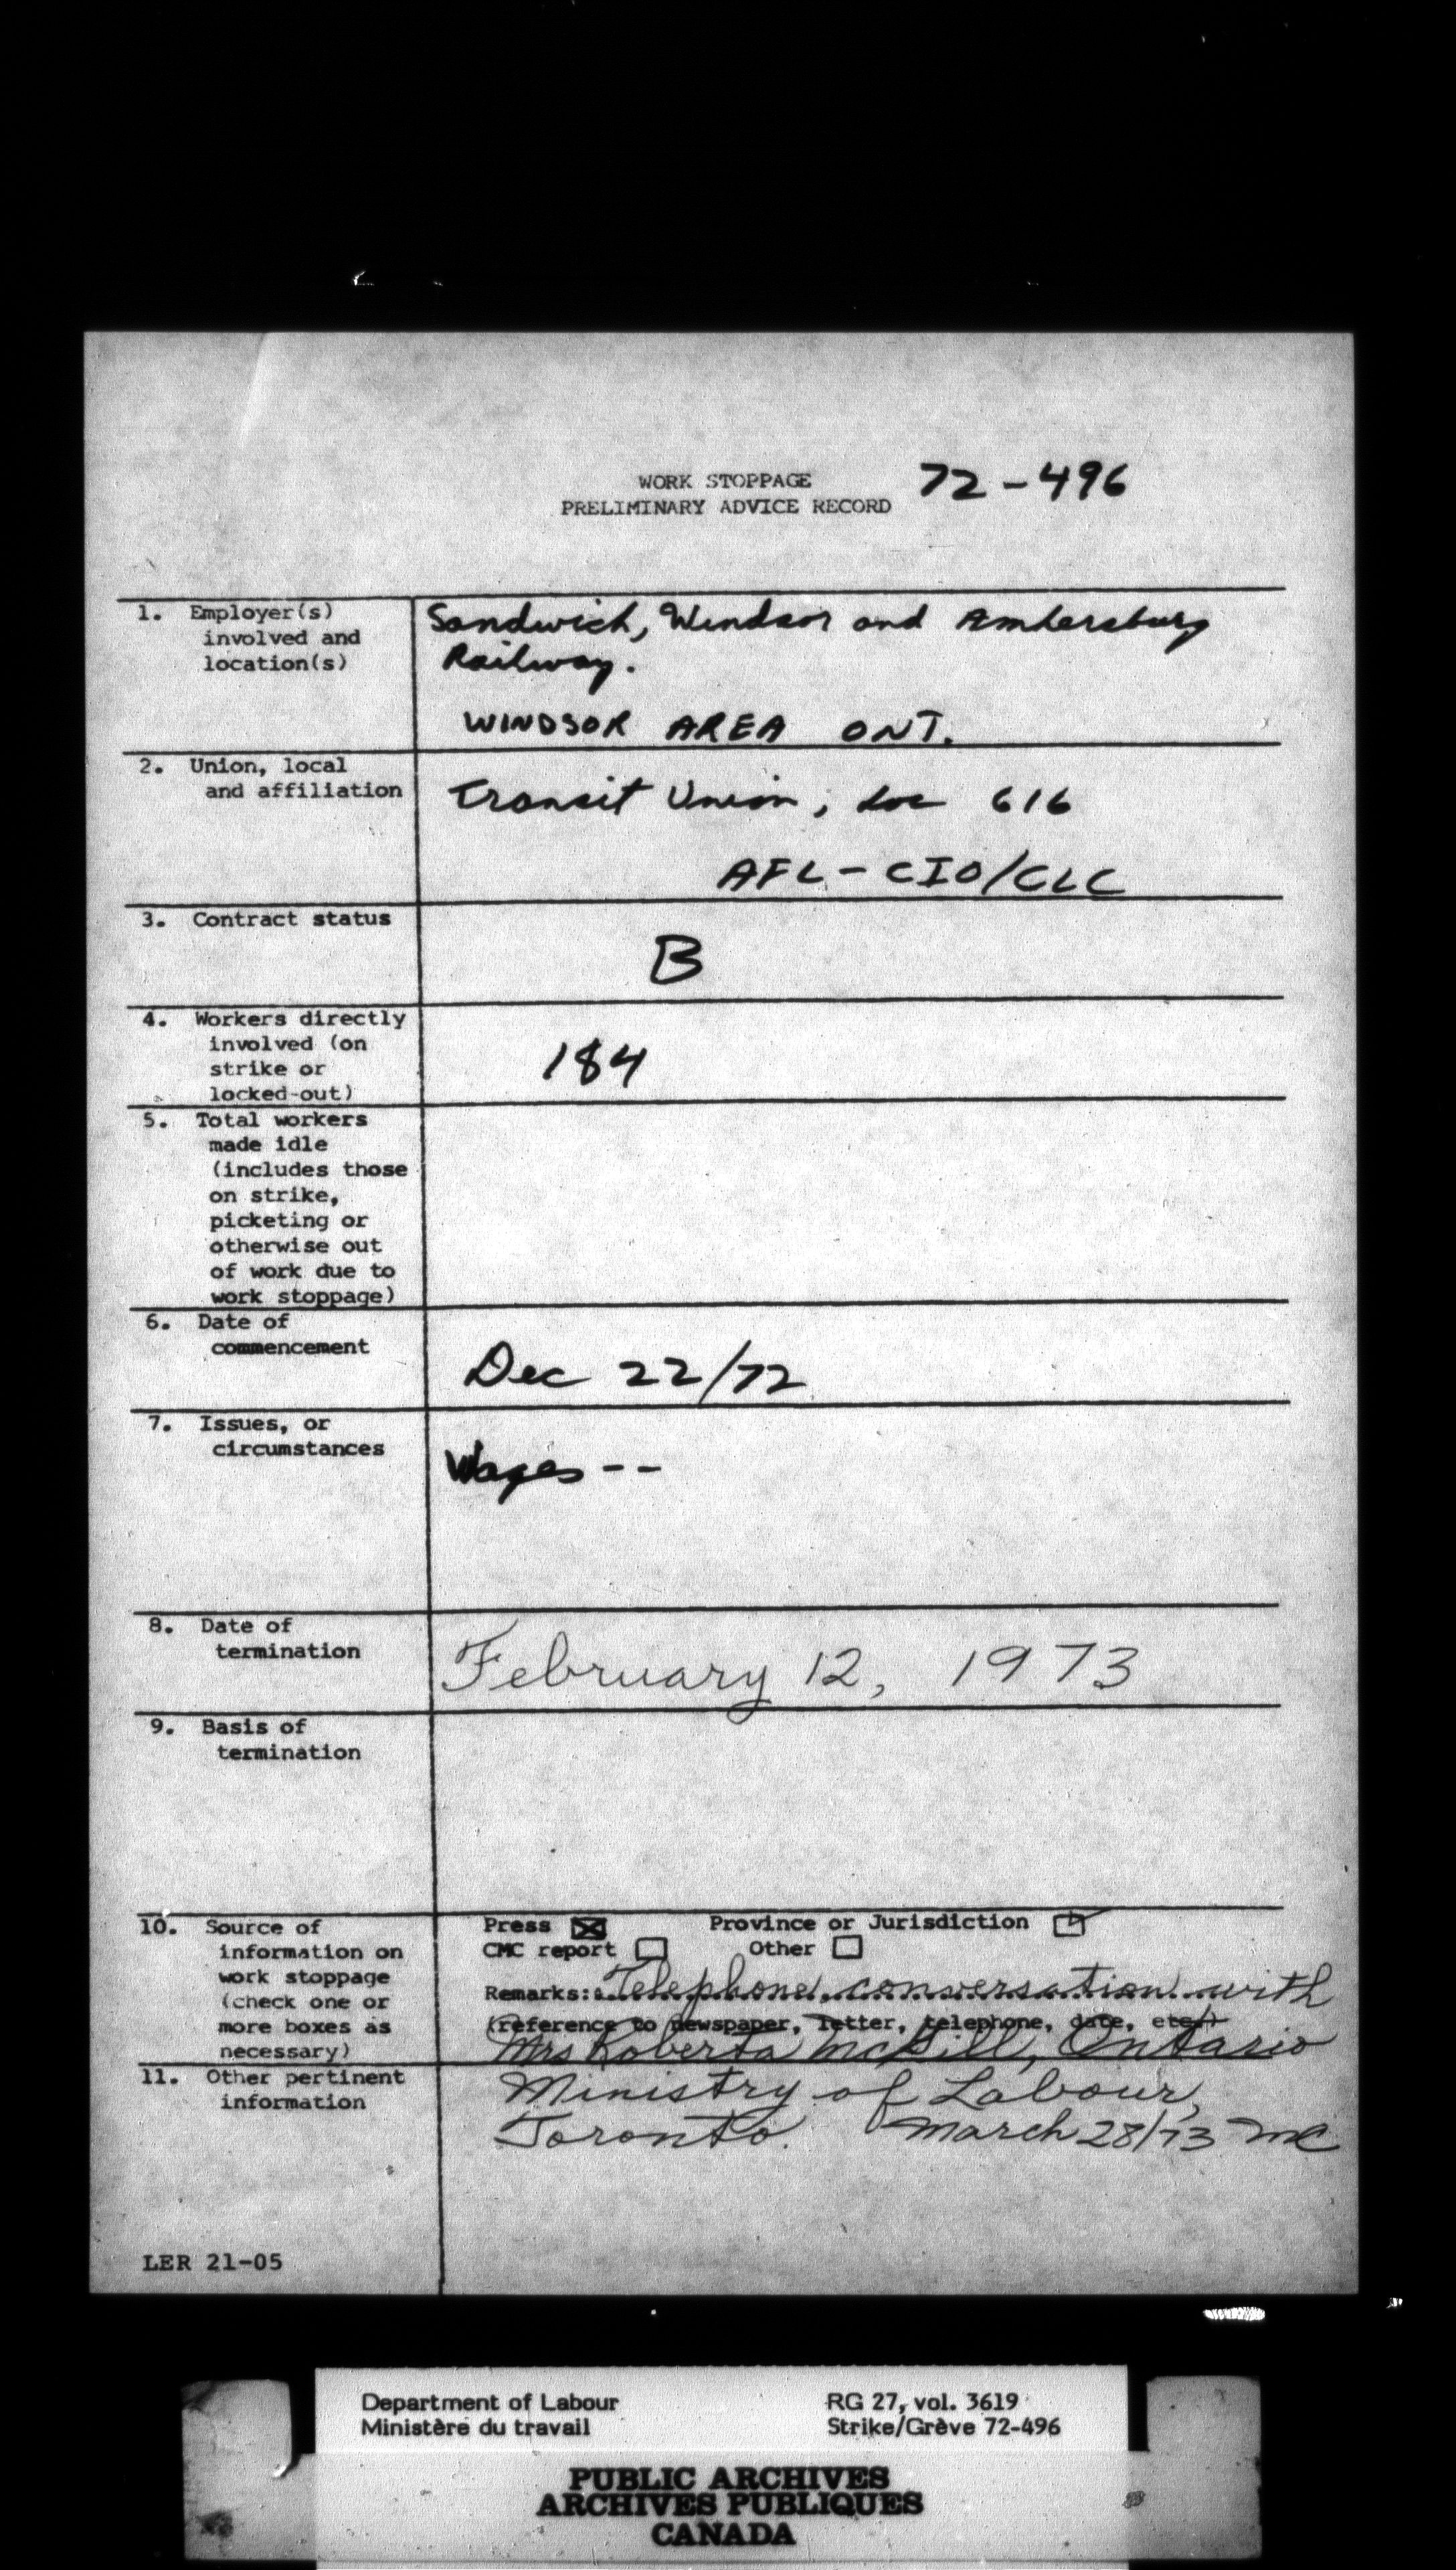 WORK STOPPAGE 72-496
PRELIMINARY ADVICE RECORD
1. Employer(s)
involved and
location(s)
Sandwich, Windsor and Amhersburg
Railway.
WINDSOR AREA ONT.
2. Union, local
and affiliation
Transit Union, Loc 616
AFL-CIO/CLC
3. Contract status
B
4. Workers directly
involved (on
strike or
locked-out)
184
5. Total workers
made idle
(includes those
on strike,
picketing or
otherwise out
of work due to
work stoppage)
6. Date of
commencement
Dec 22/72
7. Issues, or
circumstances
Wages--
8. Date of
termination
February 12, 1973
9. Basis of
termination
10. Source of
information on
work stoppage
(check one or
more boxes as
necessary)
Press Province or Jurisdiction
CMC report Other
Remarks: Telephone conversation with
(reference to newspaper, letter, telephone, date, etc.)
Mrs Roberta McGill, Ontario
11. Other pertinent
information
Ministry of Labour,
Toronto. March 28/73 MC
LER 21-05
Department of Labour RG 27, vol. 3619
Ministère du travail Strike/Grève 72-496
PUBLIC ARCHIVES
ARCHIVES PUBLIQUES
CANADA